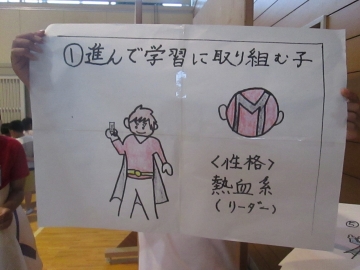 ①進んで学習に取り組む子
M
<性格>
熱血系
(リーダー)